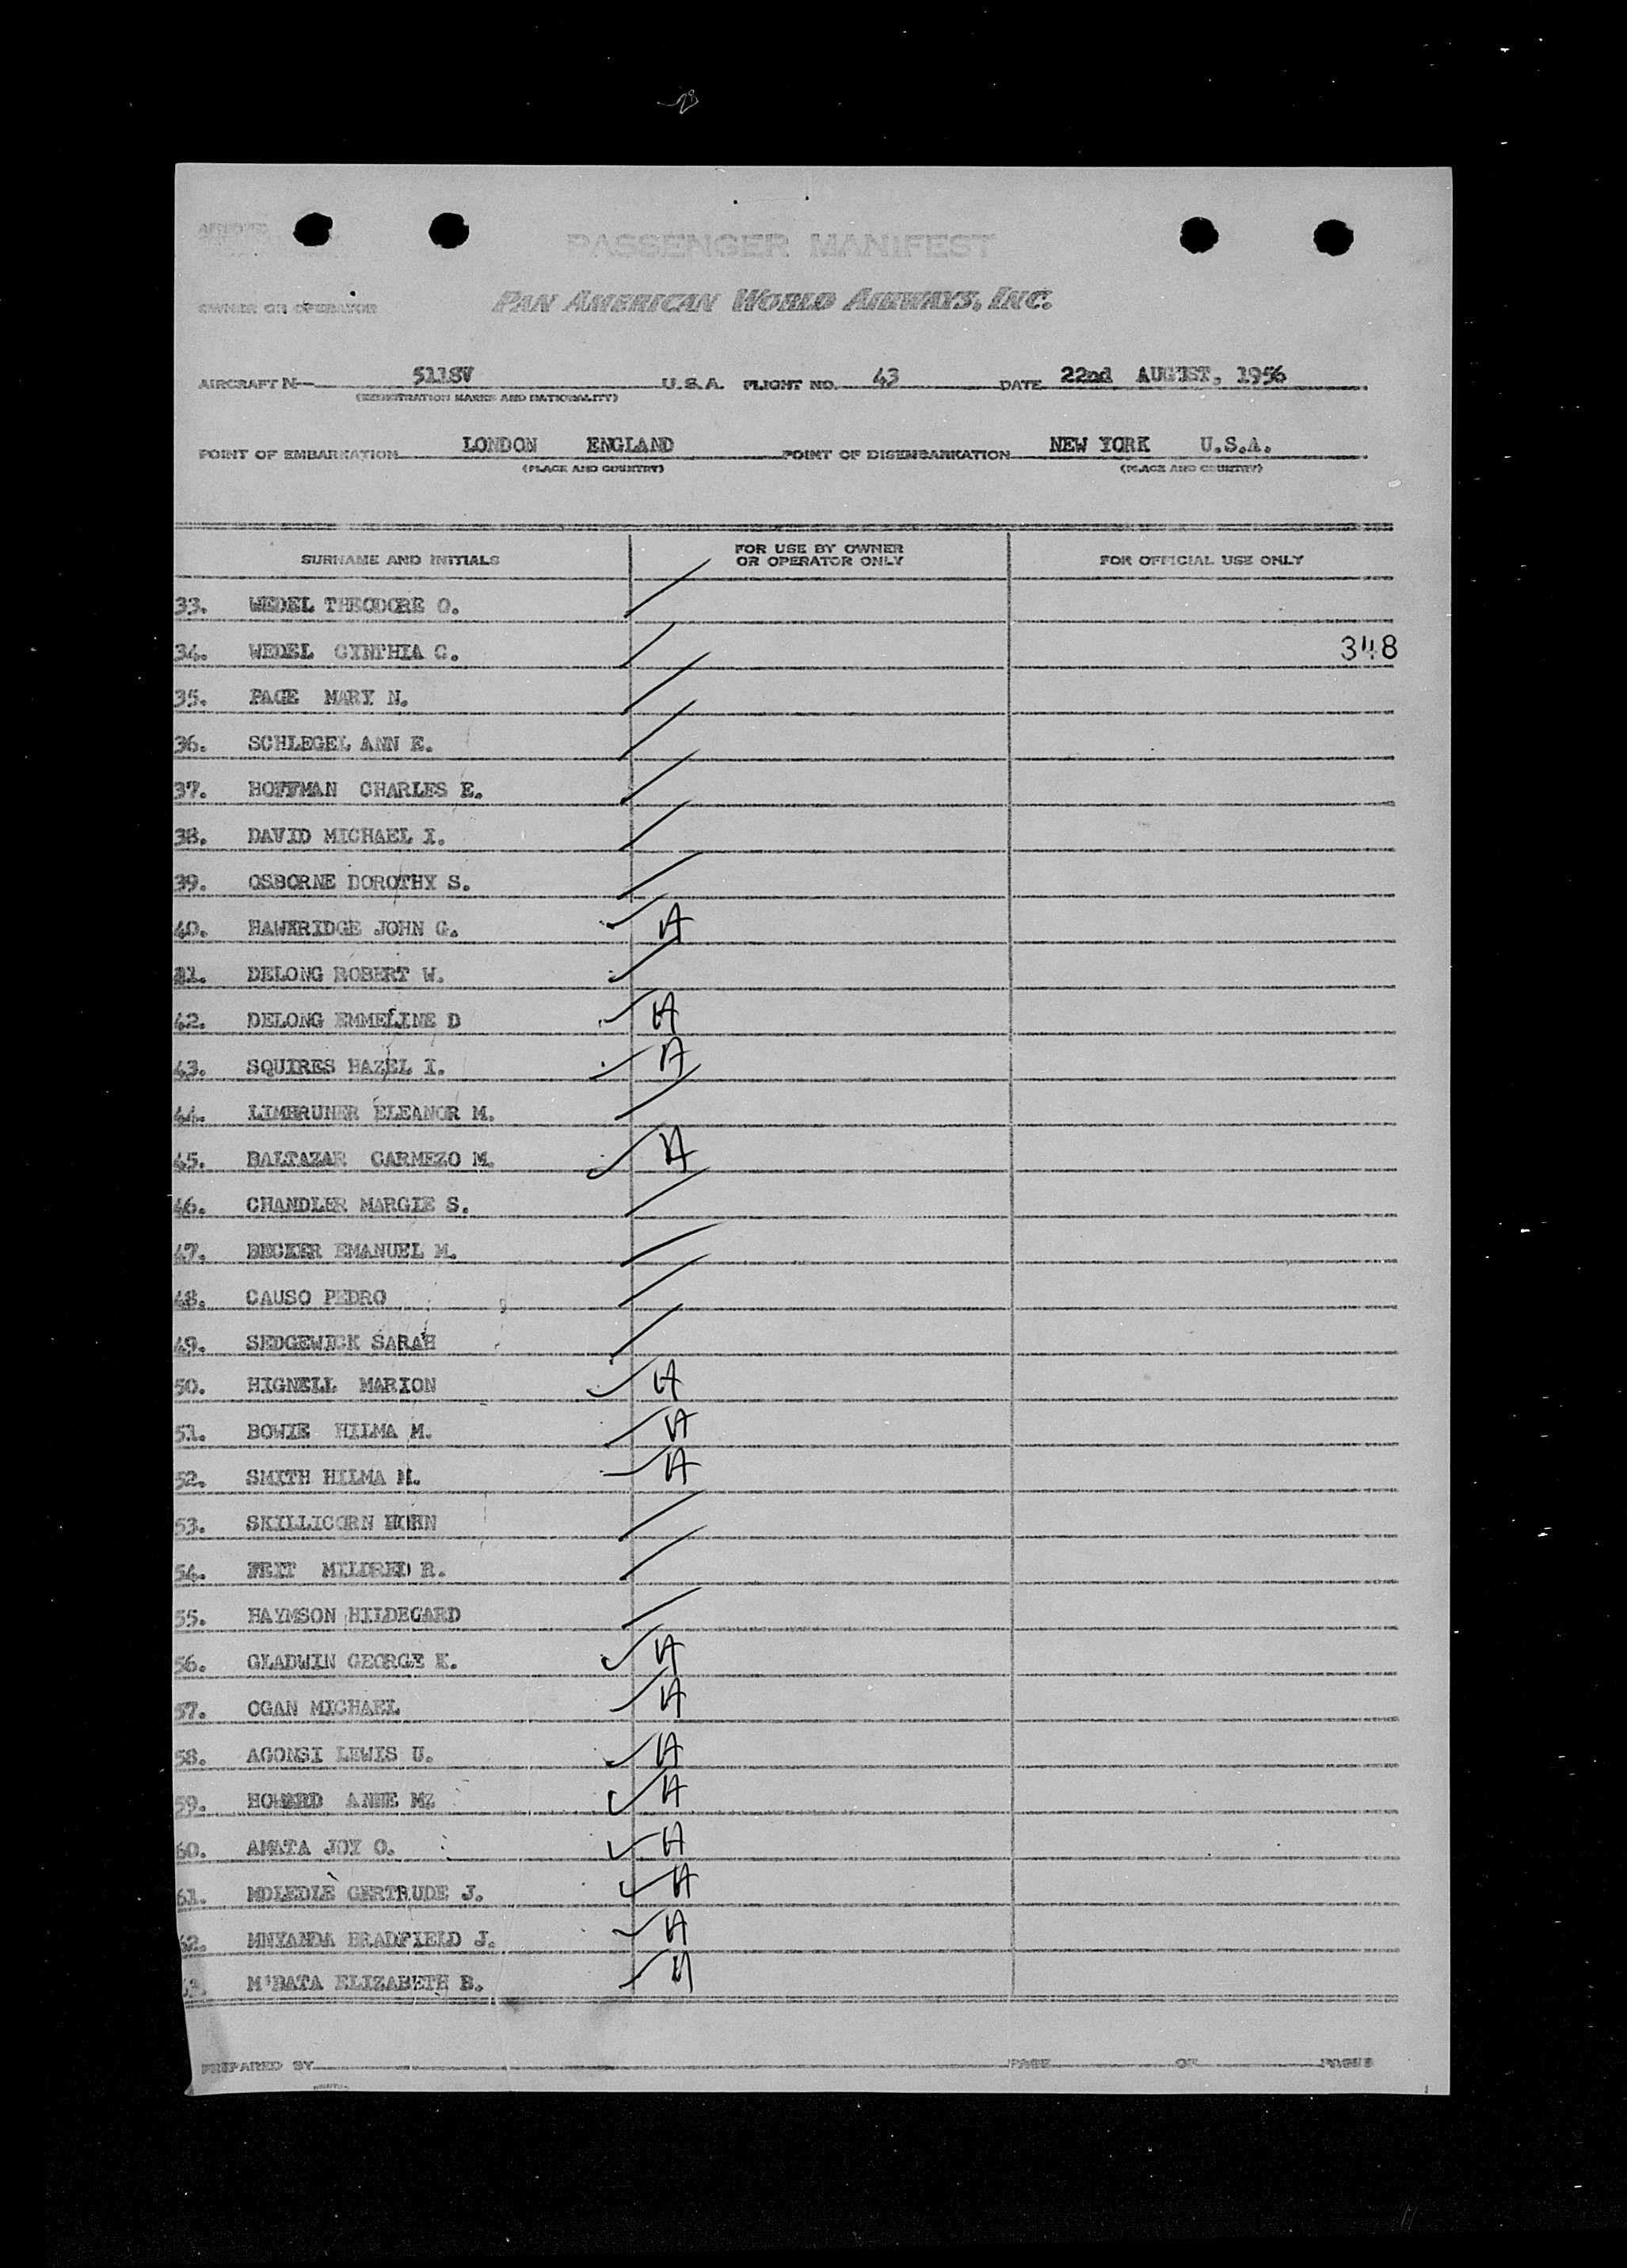 PASSENGER MANIFEST
OWNER OR OPERATOR PAN AMERICAN WORLD AIRWAYS, INC.
AIRCRAFT N 5118V U.S.A. FLIGHT NO. 43 DATE 22nd AUGUST, 1956
(REGISTRATION MARKS AND NATIONALITY)
POINT OF EMBARKATION LONDON ENGLAND POINT OF DISEMBARKATION NEW YORK U.S.A.
(PLACE AND COUNTRY) (PLACE AND COUNTRY)
SURNAME AND INITIALS FOR USE BY OWNER OR OPERATOR ONLY FOR OFFICIAL USE ONLY
33. WEDEL THEODORE O.
34. WEDEL CYNTHIA C. 348
35. PAGE MARY N.
36. SCHLEGEL ANN E.
37. HOFFMAN CHARLES E.
38. DAVID MICHAEL I.
39. OSBORNE DOROTHY S.
40. HAWKRIDGE JOHN G. A
41. DELONG ROBERT W.
42. DELONG EMMELINE D A
43. SQUIRES HAZEL I. A
44. LIMBRUNER ELEANOR M.
45. BALTAZAR CARMEZO M. A
46. CHANDLER MARGIE S.
47. BECKER EMANUEL M.
48. CAUSO PEDRO
49. SEDGEWICK SARAH
50. HIGNELL MARION A
51. BOWIE HILMA M. A
52. SMITH HILMA M. A
53. SKILLICORN
54. MILDRED R.
55. HAYMSON HILDEGARD
56. GLADWIN GEORGE K. A
57. OGAN MICHAEL A
58. AGONSI LEWIS U. A
59. HOWARD ANNE A
60. AMATA JOY O. A
61. MDLEDLE GERTRUDE J. A
62. MNYANDA BRADFIELD J. A
63. M'BATA ELIZABETH B. A
PREPARED BY PAGE OF PAGES